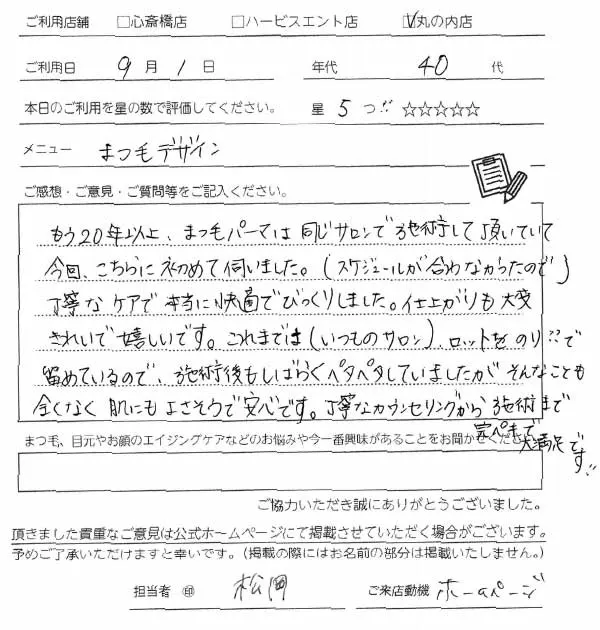 ご利用店舗 □心斎橋店 □ハービスエント店 ☑丸の内店
ご利用日 9月1日 年代 40代
本日のご利用を星の数で評価してください。 星 5つ!! ☆☆☆☆☆
メニュー まつ毛デザイン
ご感想・ご意見・ご質問等をご記入ください。
もう20年以上、まつ毛パーマは同じサロンで施術して頂いていて
今回、こちらに初めて伺いました。(スケジュールが合わなかったので)
丁寧なケアで本当に快適でびっくりしました。仕上がりも大変
きれいで嬉しいです。これまでは(いつものサロン)、ロットをのり!!で
留めているので、施術後もしばらくペタペタしていましたがそんなことも
全くなく肌にもよさそうで安心です。丁寧なカウンセリングから施術まで
完ペキで大満足です!!
まつ毛、目元やお顔のエイジングケアなどのお悩みや今一番興味があることをお聞かせください
ご協力いただき誠にありがとうございました。
頂きました貴重なご意見は公式ホームページにて掲載させていただく場合がございます。
予めご了承いただけますと幸いです。(掲載の際にはお名前の部分は掲載いたしません。)
担当者 ㊞ 松岡 ご来店動機 ホームページ